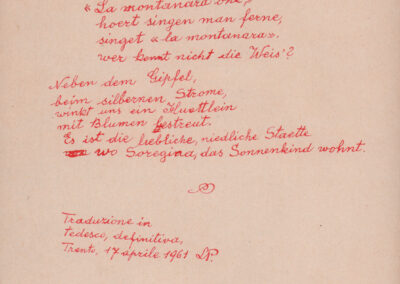 «La montanara ohe,»
hoert singen man ferne,
singet «la montanara».
wer kennt nicht die Weis'?
Neben dem Gipfel,
beim silbernen Strome,
winkt uns ein Huettlein
mit Blumen bestreut.
Es ist die liebliche, niedliche Staette
wo Soregina, das Sonnenkind wohnt.
Traduzione in
tedesco, definitiva,
Trento, 17 aprile 1961 LP.